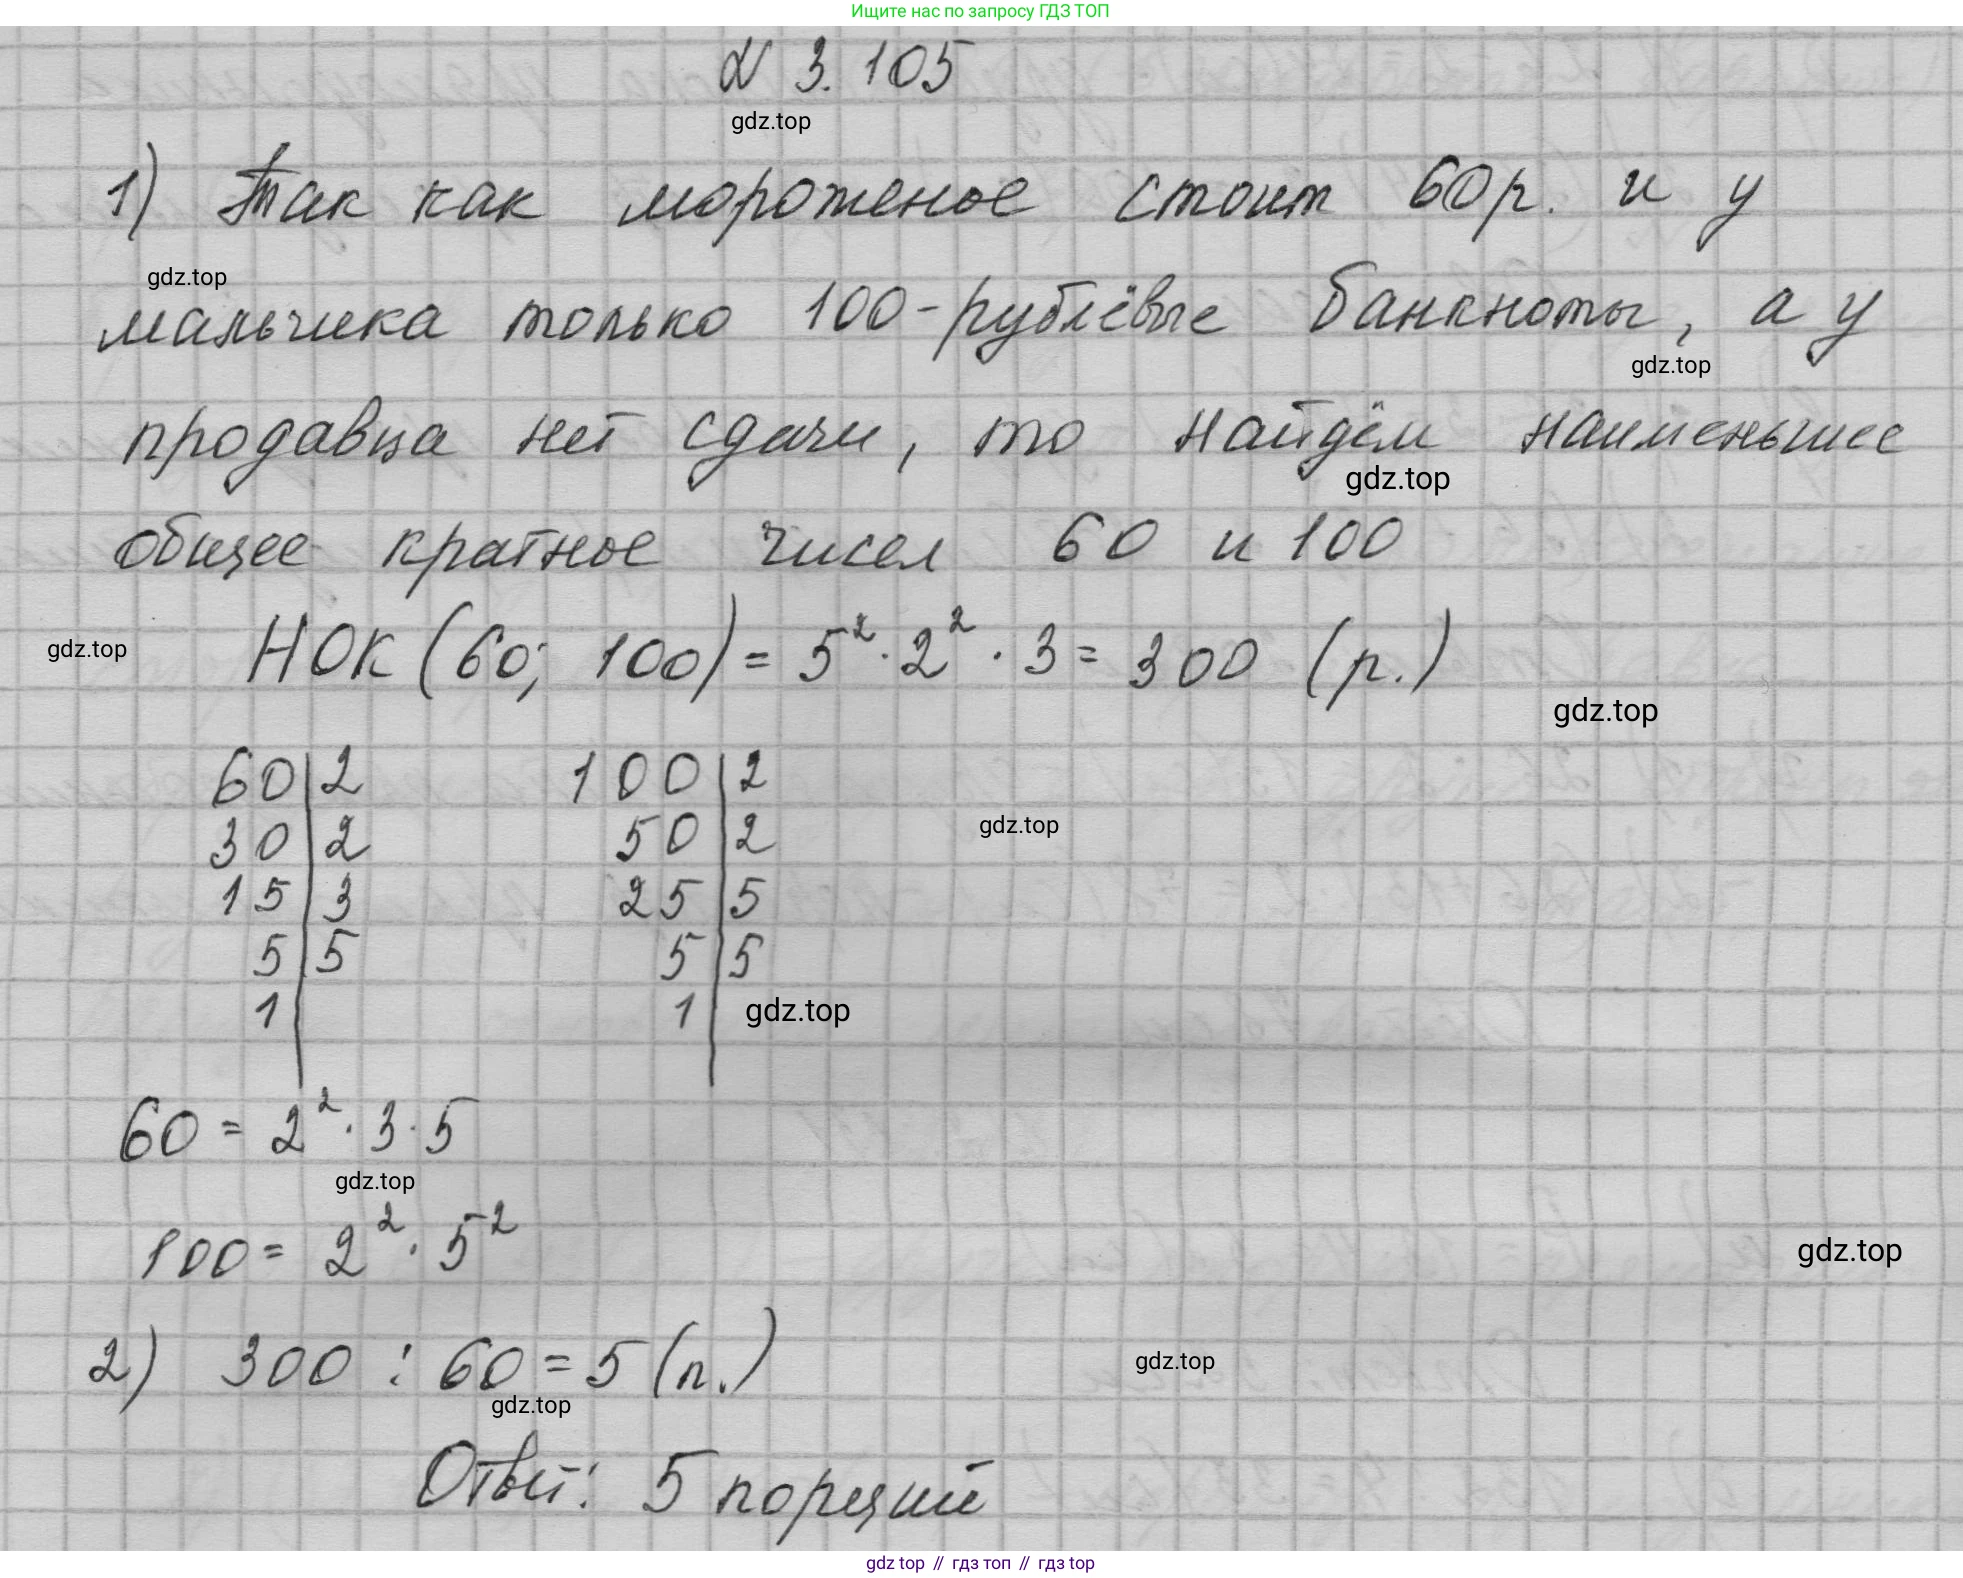 Ищите нас по запросу ГДЗ ТОП
№ 3.105
gdz.top
1) Так как мороженое стоит 60 р. и у
gdz.top
мальчика только 100-рублёвые банкноты, а у
gdz.top
продавца нет сдачи, то найдём наименьшее
gdz.top
общее кратное чисел 60 и 100
gdz.top
НОК (60; 100) = 5² · 2² · 3 = 300 (р.)
gdz.top
60 | 2 100 | 2
30 | 2 50 | 2
gdz.top
15 | 3 25 | 5
5 | 5 5 | 5
1 | 1 |
gdz.top
60 = 2² · 3 · 5
gdz.top
100 = 2² · 5²
gdz.top
2) 300 : 60 = 5 (п.)
gdz.top
gdz.top
Ответ: 5 порций
gdz top // гдз топ // гдз top